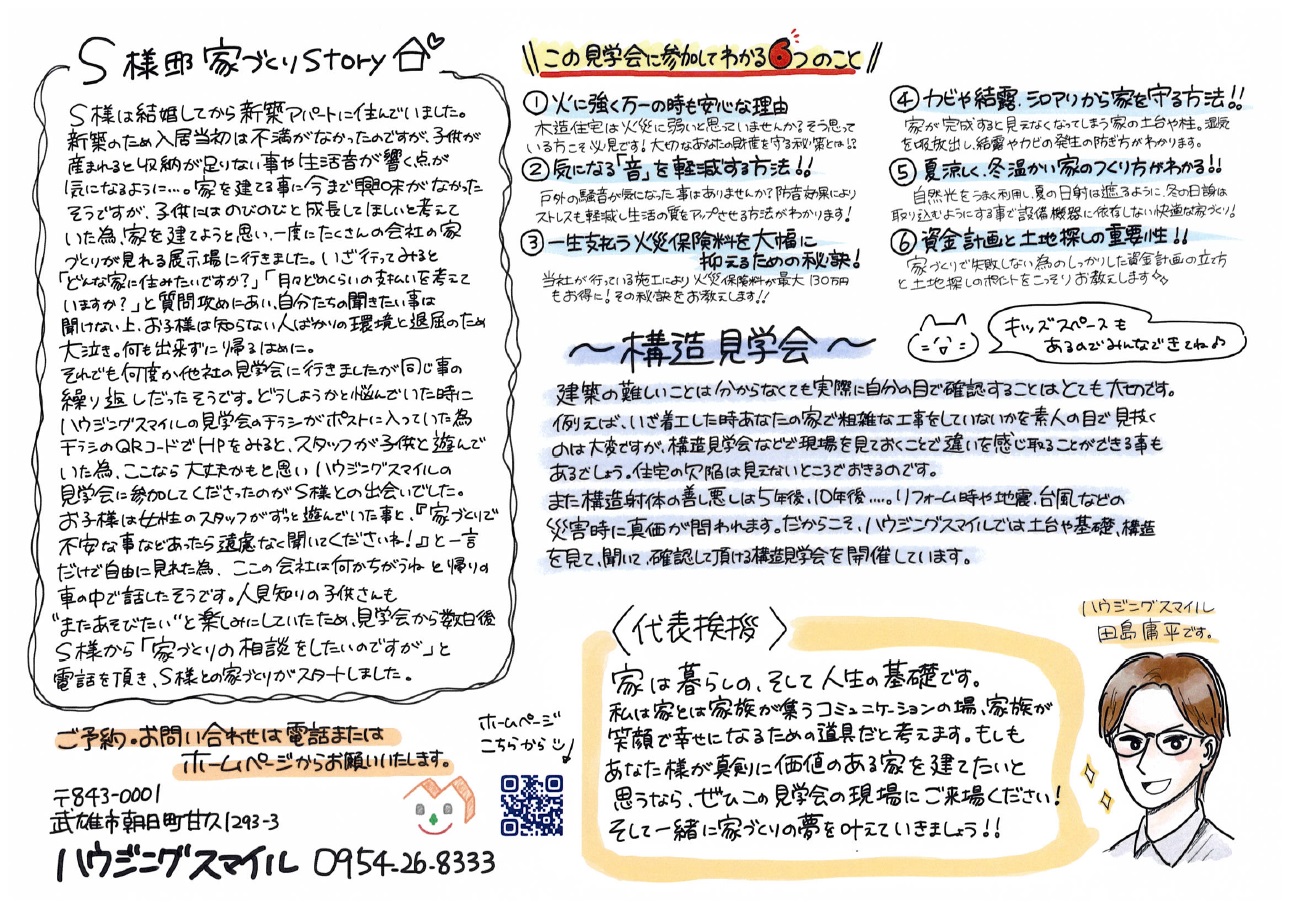 S様邸 家づくりStory
S様は結婚してから新築アパートに住んでいました。
新築のため入居当初は不満がなかったのですが、子供が
産まれると収納が足りない事や生活音が響く点が
気になるように…。家を建てる事に今まで興味がなかった
そうですが、子供にはのびのびと成長してほしいと考えて
いた為、家を建てようと思い、一度にたくさんの会社の家
づくりが見れる展示場に行きました。いざ行ってみると
「どんな家に住みたいですか?」「月々どのくらいの支払いを考えて
いますか?」と質問攻めにあい、自分たちの聞きたい事は
聞けない上、お子様は知らない人ばかりの環境と退屈のため
大泣き。何も出来ずに帰るはめに。
それでも何度か他社の見学会に行きましたが同じ事の
繰り返しだったそうです。どうしようかと悩んでいた時に
ハウジングスマイルの見学会のチラシがポストに入っていた為
チラシのQRコードでHPをみると、スタッフが子供と遊んで
いた為、ここなら大丈夫かもと思い ハウジングスマイルの
見学会に参加してくださったのがS様との出会いでした。
お子様は女性のスタッフがずっと遊んでいた事と、『家づくりで
不安な事などあったら遠慮なく聞いてくださいね!』と一言
だけで自由に見れた為、ここの会社は何かちがうね と帰りの
車の中で話したそうです。人見知りの子供さんも
"またあそびたい"と楽しみにしていたため、見学会から数日後
S様から「家づくりの相談をしたいのですが」と
電話を頂き、S様との家づくりがスタートしました。
ご予約・お問い合わせは電話または
ホームページからお願いいたします。
ホームページ
こちらから
〒843-0001
武雄市朝日町甘久1293-3
ハウジングスマイル 0954-26-8333
\\この見学会に参加してわかる6つのこと//
① 火に強く万一の時も安心な理由
木造住宅は火災に弱いと思っていませんか?そう思って
いる方こそ必見です!大切なあなたの財産を守る秘策とは!?
② 気になる「音」を軽減する方法!!
戸外の騒音が気になった事はありませんか?防音効果により
ストレスも軽減し生活の質をアップさせる方法がわかります!
③ 一生支払う火災保険料を大幅に
抑えるための秘訣!
当社が行っている施工により火災保険料が最大130万円
もお得に!その秘訣をお教えします!!
④ カビや結露、シロアリから家を守る方法!!
家が完成すると見えなくなってしまう家の土台や柱。湿気
を吸放出し、結露やカビの発生の防ぎ方がわかります。
⑤ 夏涼しく、冬温かい家のつくり方がわかる!!
自然光をうまく利用し、夏の日射は遮るように、冬の日射は
取り込むようにする事で設備機器に依存しない快適な家づくり!
⑥ 資金計画と土地探しの重要性!!
家づくりで失敗しない為のしっかりした資金計画の立て方
と土地探しのポイントをこっそりお教えします
キッズスペースも
あるのでみんなできてね♪
～構造見学会～
建築の難しいことは分からなくても実際に自分の目で確認することはとても大切です。
例えば、いざ着工した時あなたの家で粗雑な工事をしていないかを素人の目で見抜く
のは大変ですが、構造見学会などで現場を見ておくことで違いを感じ取ることができる事も
あるでしょう。住宅の欠陥は見えないところでおきるのです。
また構造躰体の善し悪しは5年後、10年後……リフォーム時や地震、台風などの
災害時に真価が問われます。だからこそ、ハウジングスマイルでは土台や基礎、構造
を見て、聞いて、確認して頂ける構造見学会を開催しています。
〈代表挨拶〉
家は暮らしの、そして人生の基礎です。
私は家とは家族が集うコミュニケーションの場、家族が
笑顔で幸せになるための道具だと考えます。もしも
あなた様が真剣に価値のある家を建てたいと
思うなら、ぜひこの見学会の現場にご来場ください!
そして一緒に家づくりの夢を叶えていきましょう!!
ハウジングスマイル
田島庸平です。